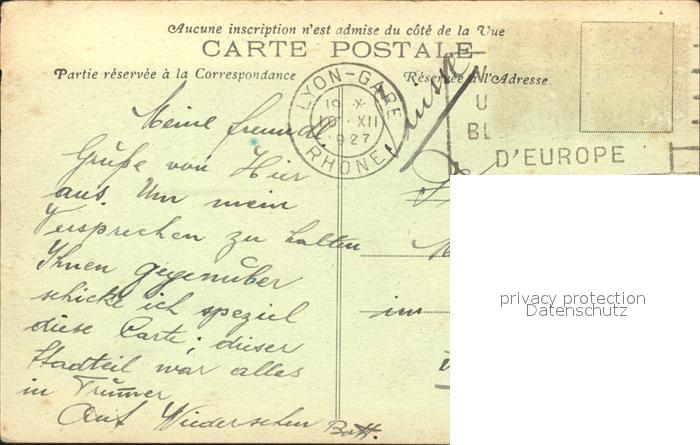 Aucune inscription n'est admise du côté de la Vue
CARTE POSTALE
Partie réservée à la Correspondance
Réservée à l'Adresse
LYON-GARE
19 - X -
10 · XII
1927
RHONE
U
BL
D'EUROPE
Meine freundl.
Grüße von Hier
aus. Um mein
Versprechen zu halten
Ihnen gegenüber
schicke ich speziel
diese Carte; dieser
Stadtteil war alles
in Trümer
Auf Wiedersehen
im
privacy protection
Datenschutz